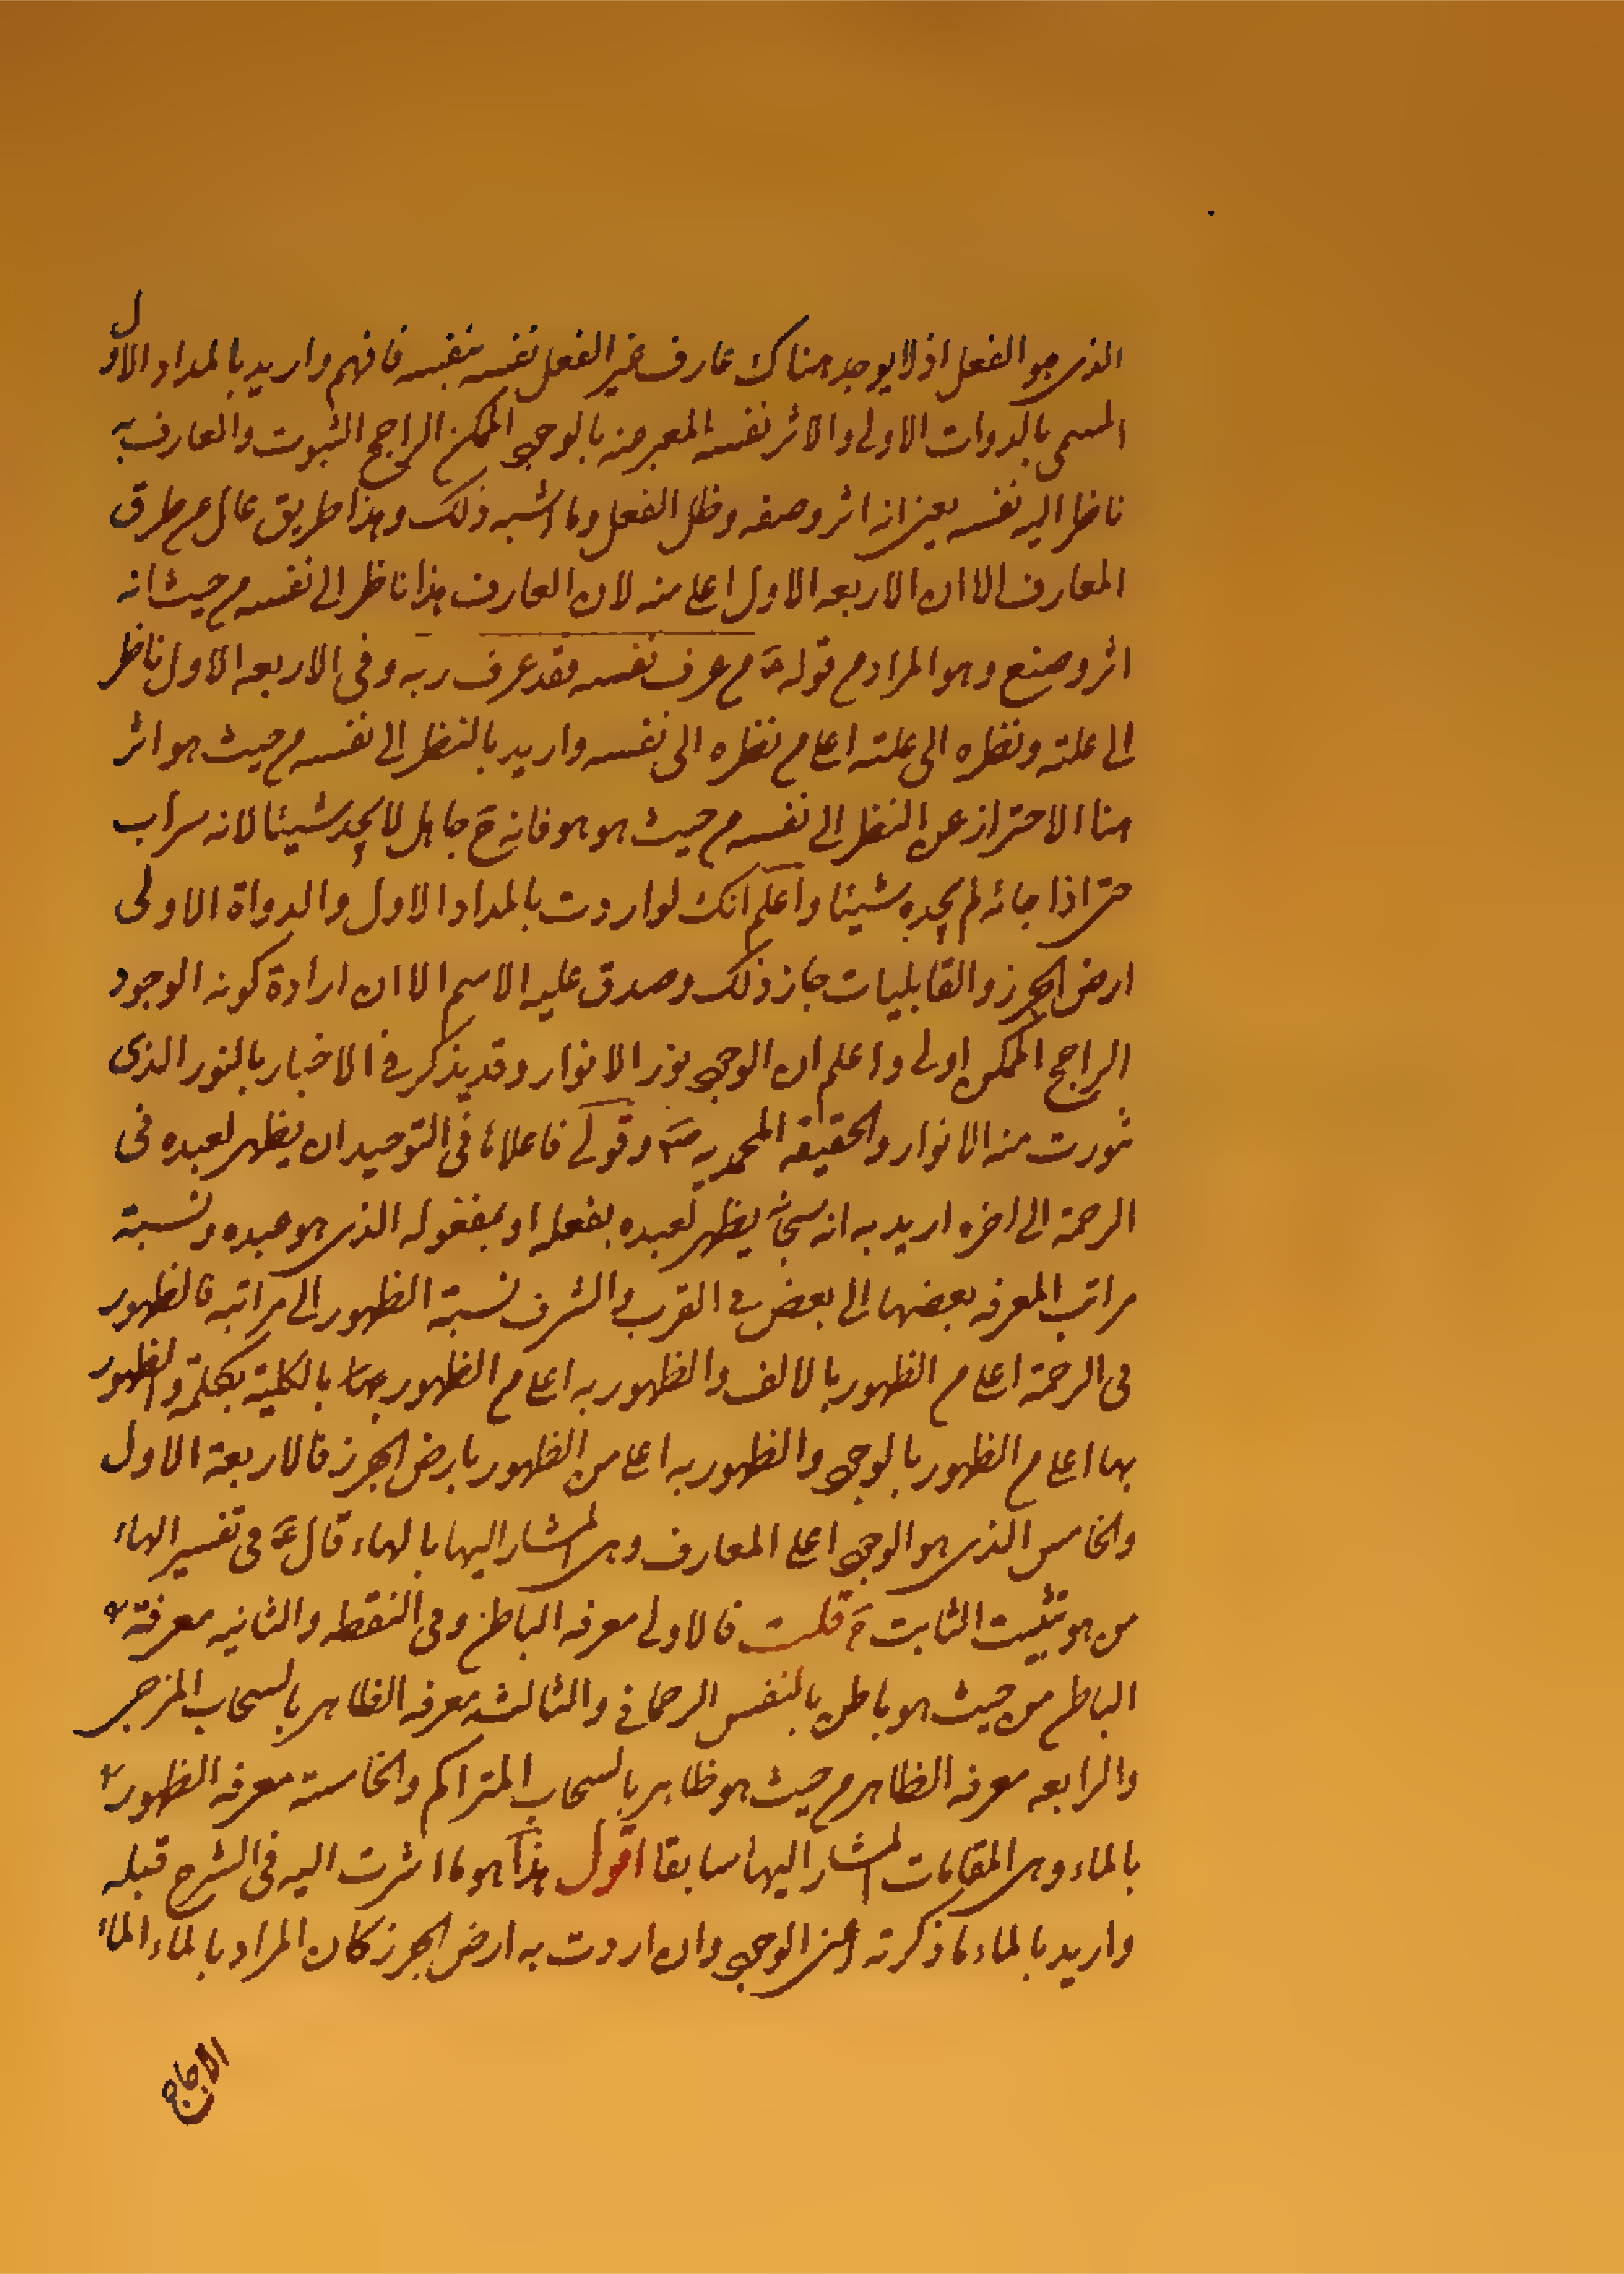 الذى هو الفعل اذ لا يوجد هناك عارف غير الفعل نفسه بنفسه فافهم واريد بالمداد الاول
المسمى بالدوات الاولى والاثر نفسه المعبر عنه بالوجود الممكن الراجح الثبوت والعارف به
ناظر اليه نفسه يعنى انه اثر وصفه وظل الفعل وما اشبه ذلك وهذا طريق عال من طرق
المعارف الا ان الاربعه الاول اعلى منه لان العارف هذا ناظر الى نفسه من حيث انه
اثر وصنع وهو المراد من قوله ع من عرف نفسه فقد عرف ربه وفى الاربعه الاول ناظر
الى علته ونظره الى علته اعلى من نظره الى نفسه واريد بالنظر الى نفسه من حيث هو اثر
هنا الاحتراز عن النظر الى نفسه من حيث هو هو فانه ح جاهل لا يجد شيئا لانه سراب
حتى اذا جائه لم يجده شيئا واعلم انك لو اردت بالمداد الاول والدواة الاولى
ارض الجرز والقابليات جاز ذلك وصدق عليه الاسم الا ان ارادة كونه الوجود
الراجح الممكن اولى واعلم ان الوجود نور الانوار وقد يذكر فى الاخبار بالنور الذى
نورت منه الانوار والحقيقه المحمديه ص وقولى فاعلاها فى التوحيد ان يظهر لعبده فى
الرحمة الى اخره اريد به انه سبحانه يظهر لعبده بفعله او بمفعوله الذى هو عبده ونسبة
مراتب المعرفه بعضها الى بعض فى القرب و الشرف نسبة الظهور الى مراتبه فالظهور
فى الرحمة اعلى من الظهور بالالف والظهور به اعلى من الظهور بالكلية بكلمة والظهور
بها اعلى من الظهور بالوجود والظهور به اعلى من الظهور بارض الجرز فالاربعة الاول
والخامس الذى هو الوجود اعلى المعارف وهى المشار اليها بالهاء قال ع فى تفسير الهاء
من هو تثبيت الثابت قلت فالاولى معرفه الباطن وهى النقطه والثانيه معرفة
الباطن من حيث هو باطن بالنفس الرحمانى والثالثه معرفه الظاهر بالسحاب المزجى
والرابعه معرفه الظاهر من حيث هو ظاهر بالسحاب المتراكم والخامسة معرفه الظهور
بالماء وهى المقامات المشار اليها سابقا اقول هذا هو ما اشرت اليه فى الشرح قبله
واريد بالماء ما ذكرته اعنى الوجود وان اردت به ارض الجرز كان المراد بالماء الماء
الاجاج